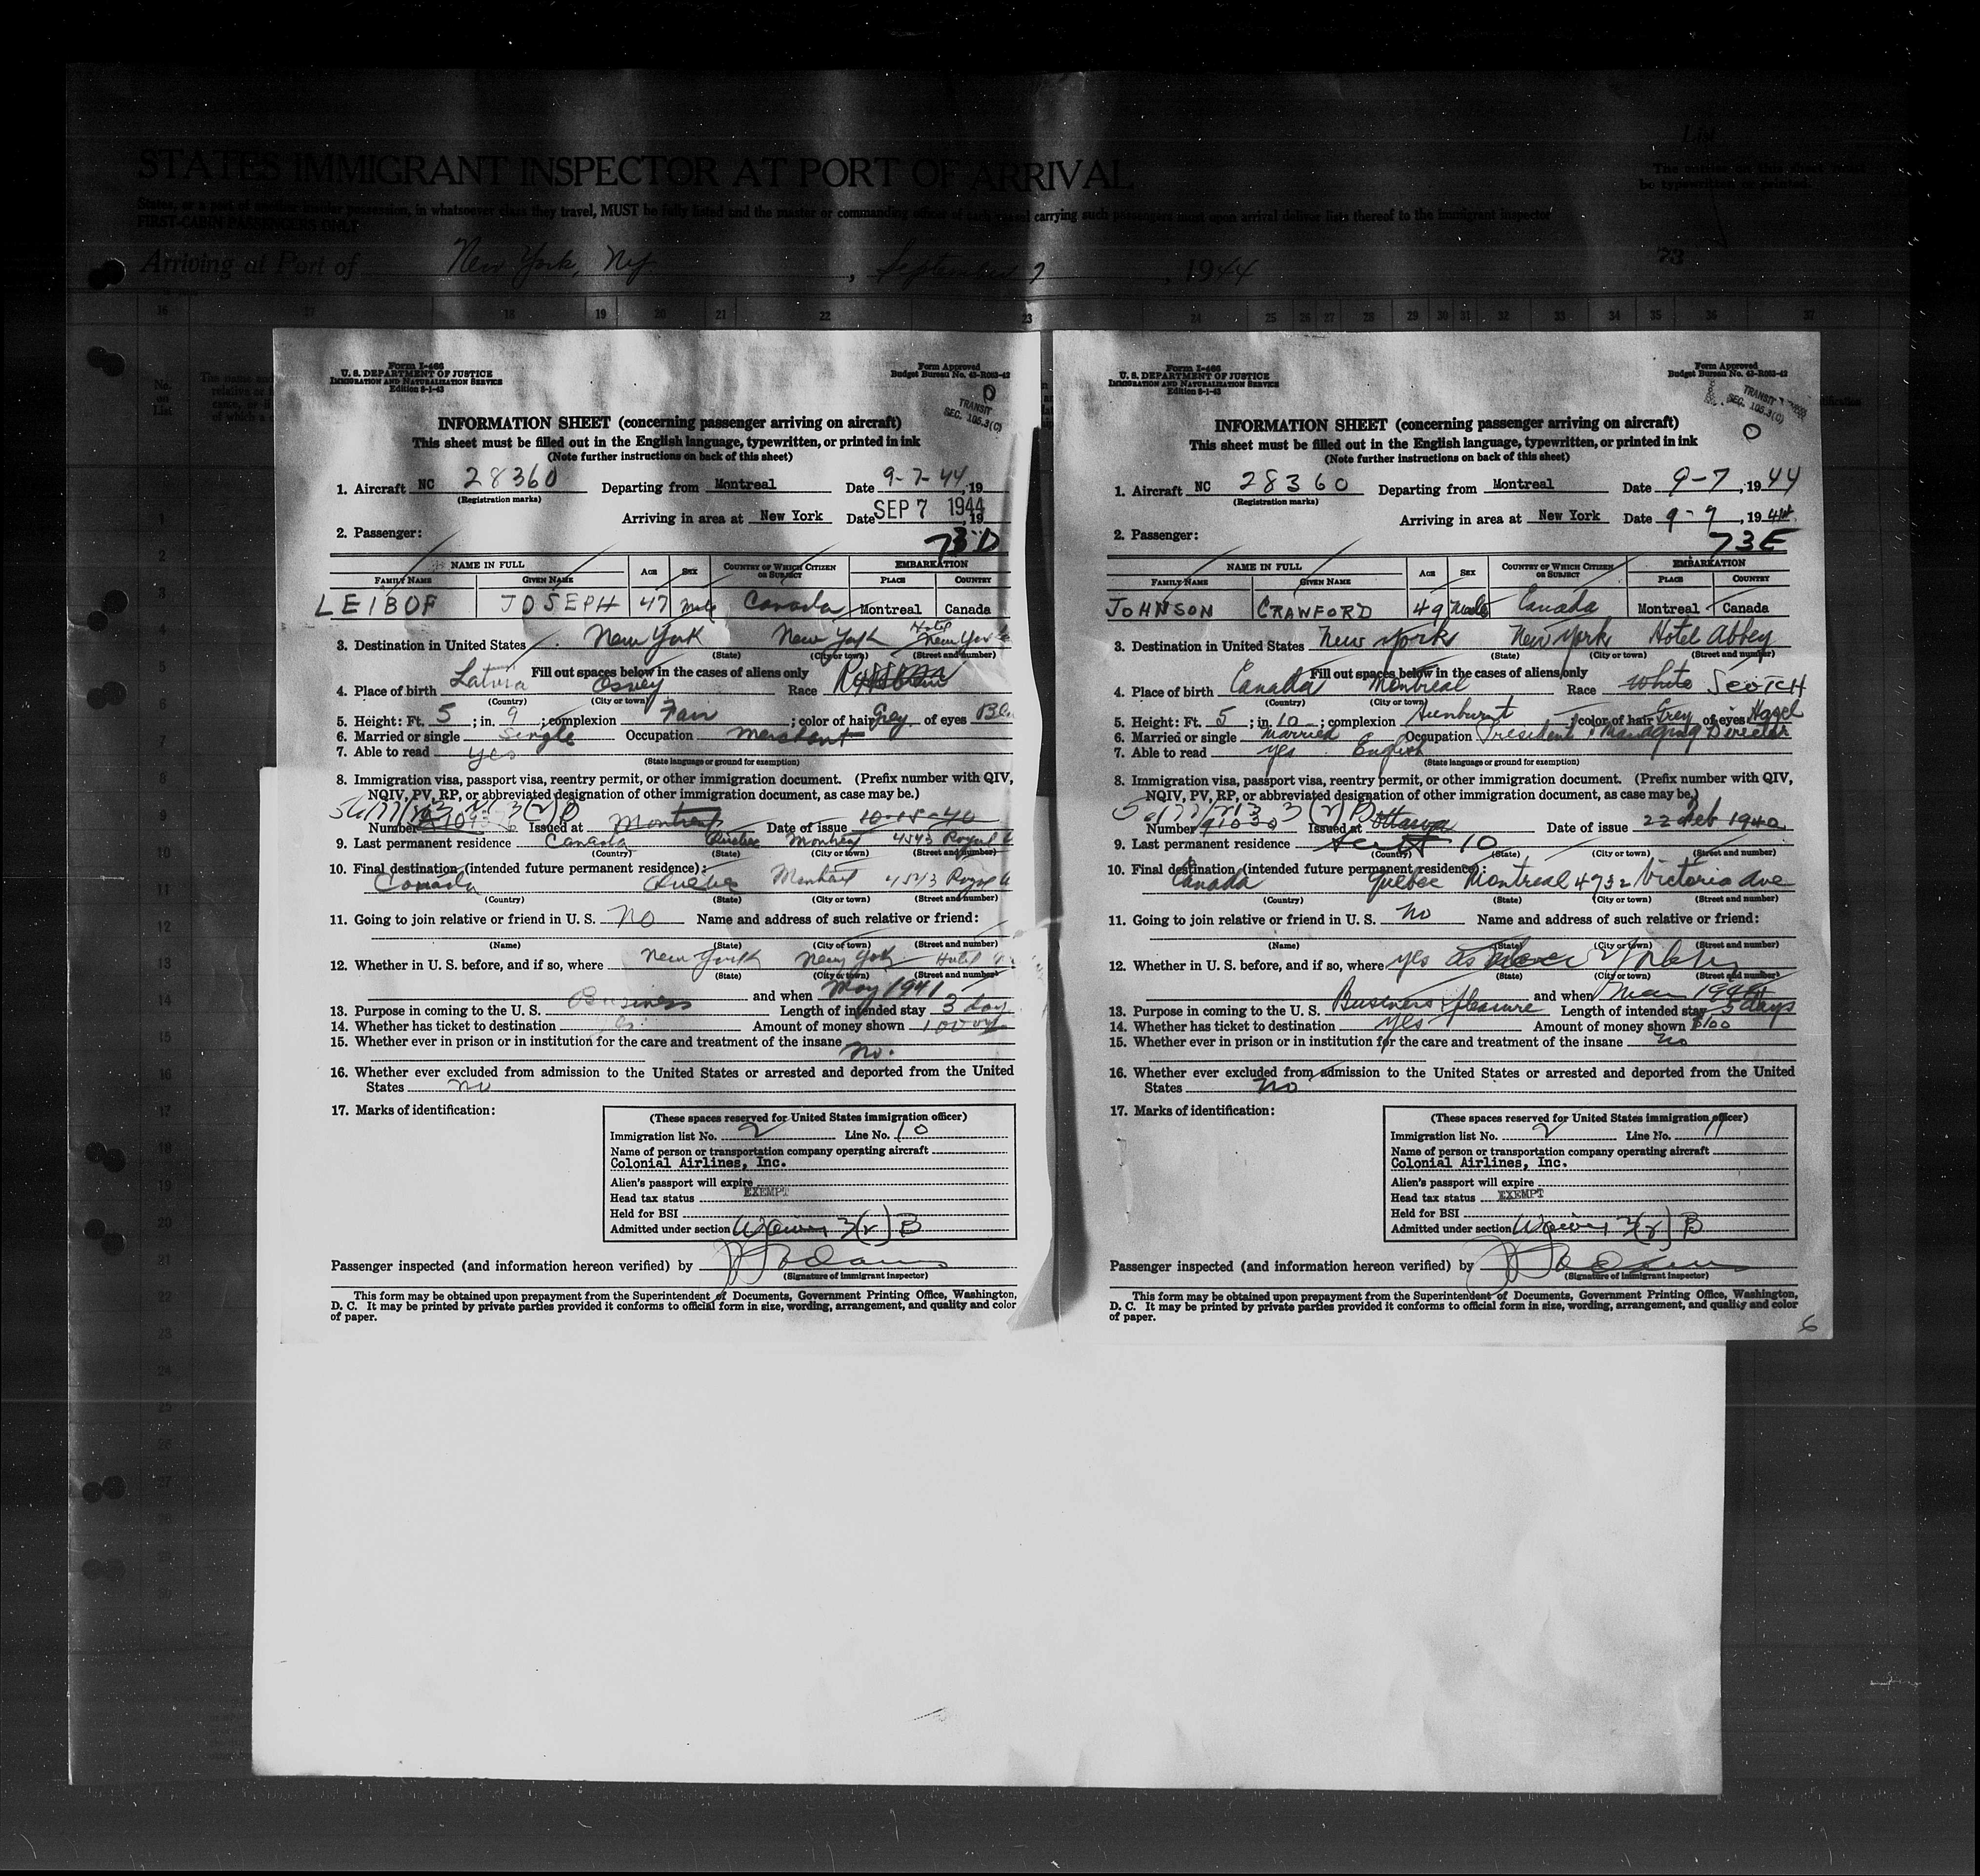 STATES IMMIGRANT INSPECTOR AT PORT OF ARRIVAL
States, or a port of another insular possession, in whatsoever class they travel, MUST be fully listed and the master or commanding officer of each vessel carrying such passengers must upon arrival deliver lists thereof to the immigrant inspector
FIRST-CABIN PASSENGERS ONLY
List
The entries on this sheet must
be typewritten or printed.
Arriving at Port of New York, NY, September 7, 1944
73
16 17 18 19 20 21 22 23 24 25 26 27 28 29 30 31 32 33 34 35 36 37
No. on List
Form I-466
U. S. DEPARTMENT OF JUSTICE
IMMIGRATION AND NATURALIZATION SERVICE
Edition 8-1-43
Form Approved
Budget Bureau No. 43-R063-42
TRANSIT
SEC. 105.3(C)
INFORMATION SHEET (concerning passenger arriving on aircraft)
This sheet must be filled out in the English language, typewritten, or printed in ink
(Note further instructions on back of this sheet)
1. Aircraft NC 28360 Departing from Montreal Date 9-7-44, 19
(Registration marks)
Arriving in area at New York Date SEP 7 1944, 19
2. Passenger:
73D
NAME IN FULL AGE SEX COUNTRY OF WHICH CITIZEN OR SUBJECT EMBARKATION
FAMILY NAME GIVEN NAME PLACE COUNTRY
LEIBOF JOSEPH 47 Male Canada Montreal Canada
3. Destination in United States New York New York Hotel New York
(State) (City or town) (Street and number)
Fill out spaces below in the cases of aliens only
4. Place of birth Latvia Race
(Country) (City or town)
5. Height: Ft. 5; in. 9; complexion Fair; color of hair Grey of eyes
6. Married or single Single Occupation merchant
7. Able to read yes
(State language or ground for exemption)
8. Immigration visa, passport visa, reentry permit, or other immigration document. (Prefix number with QIV,
NQIV, PV, RP, or abbreviated designation of other immigration document, as case may be.)
Number Issued at Montreal Date of issue 10-15-40
9. Last permanent residence Canada Quebec Montreal 4543 Royal
(Country) (State) (City or town) (Street and number)
10. Final destination (intended future permanent residence):
Canada Quebec Montreal 4543 Royal
(Country) (State) (City or town) (Street and number)
11. Going to join relative or friend in U. S. no Name and address of such relative or friend:
(Name) (State) (City or town) (Street and number)
12. Whether in U. S. before, and if so, where New York New York Hotel
(State) (City or town) (Street and number)
and when May 1941
13. Purpose in coming to the U. S. Business Length of intended stay 3 day
14. Whether has ticket to destination yes Amount of money shown
15. Whether ever in prison or in institution for the care and treatment of the insane no.
16. Whether ever excluded from admission to the United States or arrested and deported from the United
States no
17. Marks of identification:
(These spaces reserved for United States immigration officer)
Immigration list No. 2 Line No. 10
Name of person or transportation company operating aircraft
Colonial Airlines, Inc.
Alien's passport will expire
Head tax status EXEMPT
Held for BSI
Admitted under section Waiver 3(2) B
Passenger inspected (and information hereon verified) by
(Signature of immigrant inspector)
This form may be obtained upon prepayment from the Superintendent of Documents, Government Printing Office, Washington,
D. C. It may be printed by private parties provided it conforms to official form in size, wording, arrangement, and quality and color
of paper.
Form I-466
U. S. DEPARTMENT OF JUSTICE
IMMIGRATION AND NATURALIZATION SERVICE
Edition 8-1-43
Form Approved
Budget Bureau No. 43-R063-42
TRANSIT
SEC. 105.3(C)
INFORMATION SHEET (concerning passenger arriving on aircraft)
This sheet must be filled out in the English language, typewritten, or printed in ink
(Note further instructions on back of this sheet)
1. Aircraft NC 28360 Departing from Montreal Date 9-7, 1944
(Registration marks)
Arriving in area at New York Date 9-9, 1944
2. Passenger:
73E
NAME IN FULL AGE SEX COUNTRY OF WHICH CITIZEN OR SUBJECT EMBARKATION
FAMILY NAME GIVEN NAME PLACE COUNTRY
JOHNSON CRAWFORD 49 Male Canada Montreal Canada
3. Destination in United States New York New York Hotel Abbey
(State) (City or town) (Street and number)
Fill out spaces below in the cases of aliens only
4. Place of birth Canada Montreal Race White SCOTCH
(Country) (City or town)
5. Height: Ft. 5; in. 10; complexion Sunburnt; color of hair Grey of eyes Hazel
6. Married or single Married Occupation President & Managing Director
7. Able to read yes English
(State language or ground for exemption)
8. Immigration visa, passport visa, reentry permit, or other immigration document. (Prefix number with QIV,
NQIV, PV, RP, or abbreviated designation of other immigration document, as case may be.)
Number 91030 Issued at Ottawa Date of issue 22 Feb 1940
9. Last permanent residence 10
(Country) (State) (City or town) (Street and number)
10. Final destination (intended future permanent residence):
Canada Quebec Montreal 4732 Victoria Ave
(Country) (State) (City or town) (Street and number)
11. Going to join relative or friend in U. S. no Name and address of such relative or friend:
(Name) (State) (City or town) (Street and number)
12. Whether in U. S. before, and if so, where yes as above
(State) (City or town) (Street and number)
and when
13. Purpose in coming to the U. S. Business & pleasure Length of intended stay 5 days
14. Whether has ticket to destination yes Amount of money shown $100
15. Whether ever in prison or in institution for the care and treatment of the insane no
16. Whether ever excluded from admission to the United States or arrested and deported from the United
States no
17. Marks of identification:
(These spaces reserved for United States immigration officer)
Immigration list No. 2 Line No. 11
Name of person or transportation company operating aircraft
Colonial Airlines, Inc.
Alien's passport will expire
Head tax status EXEMPT
Held for BSI
Admitted under section Waiver 3(2) B
Passenger inspected (and information hereon verified) by
(Signature of immigrant inspector)
This form may be obtained upon prepayment from the Superintendent of Documents, Government Printing Office, Washington,
D. C. It may be printed by private parties provided it conforms to official form in size, wording, arrangement, and quality and color
of paper.
6